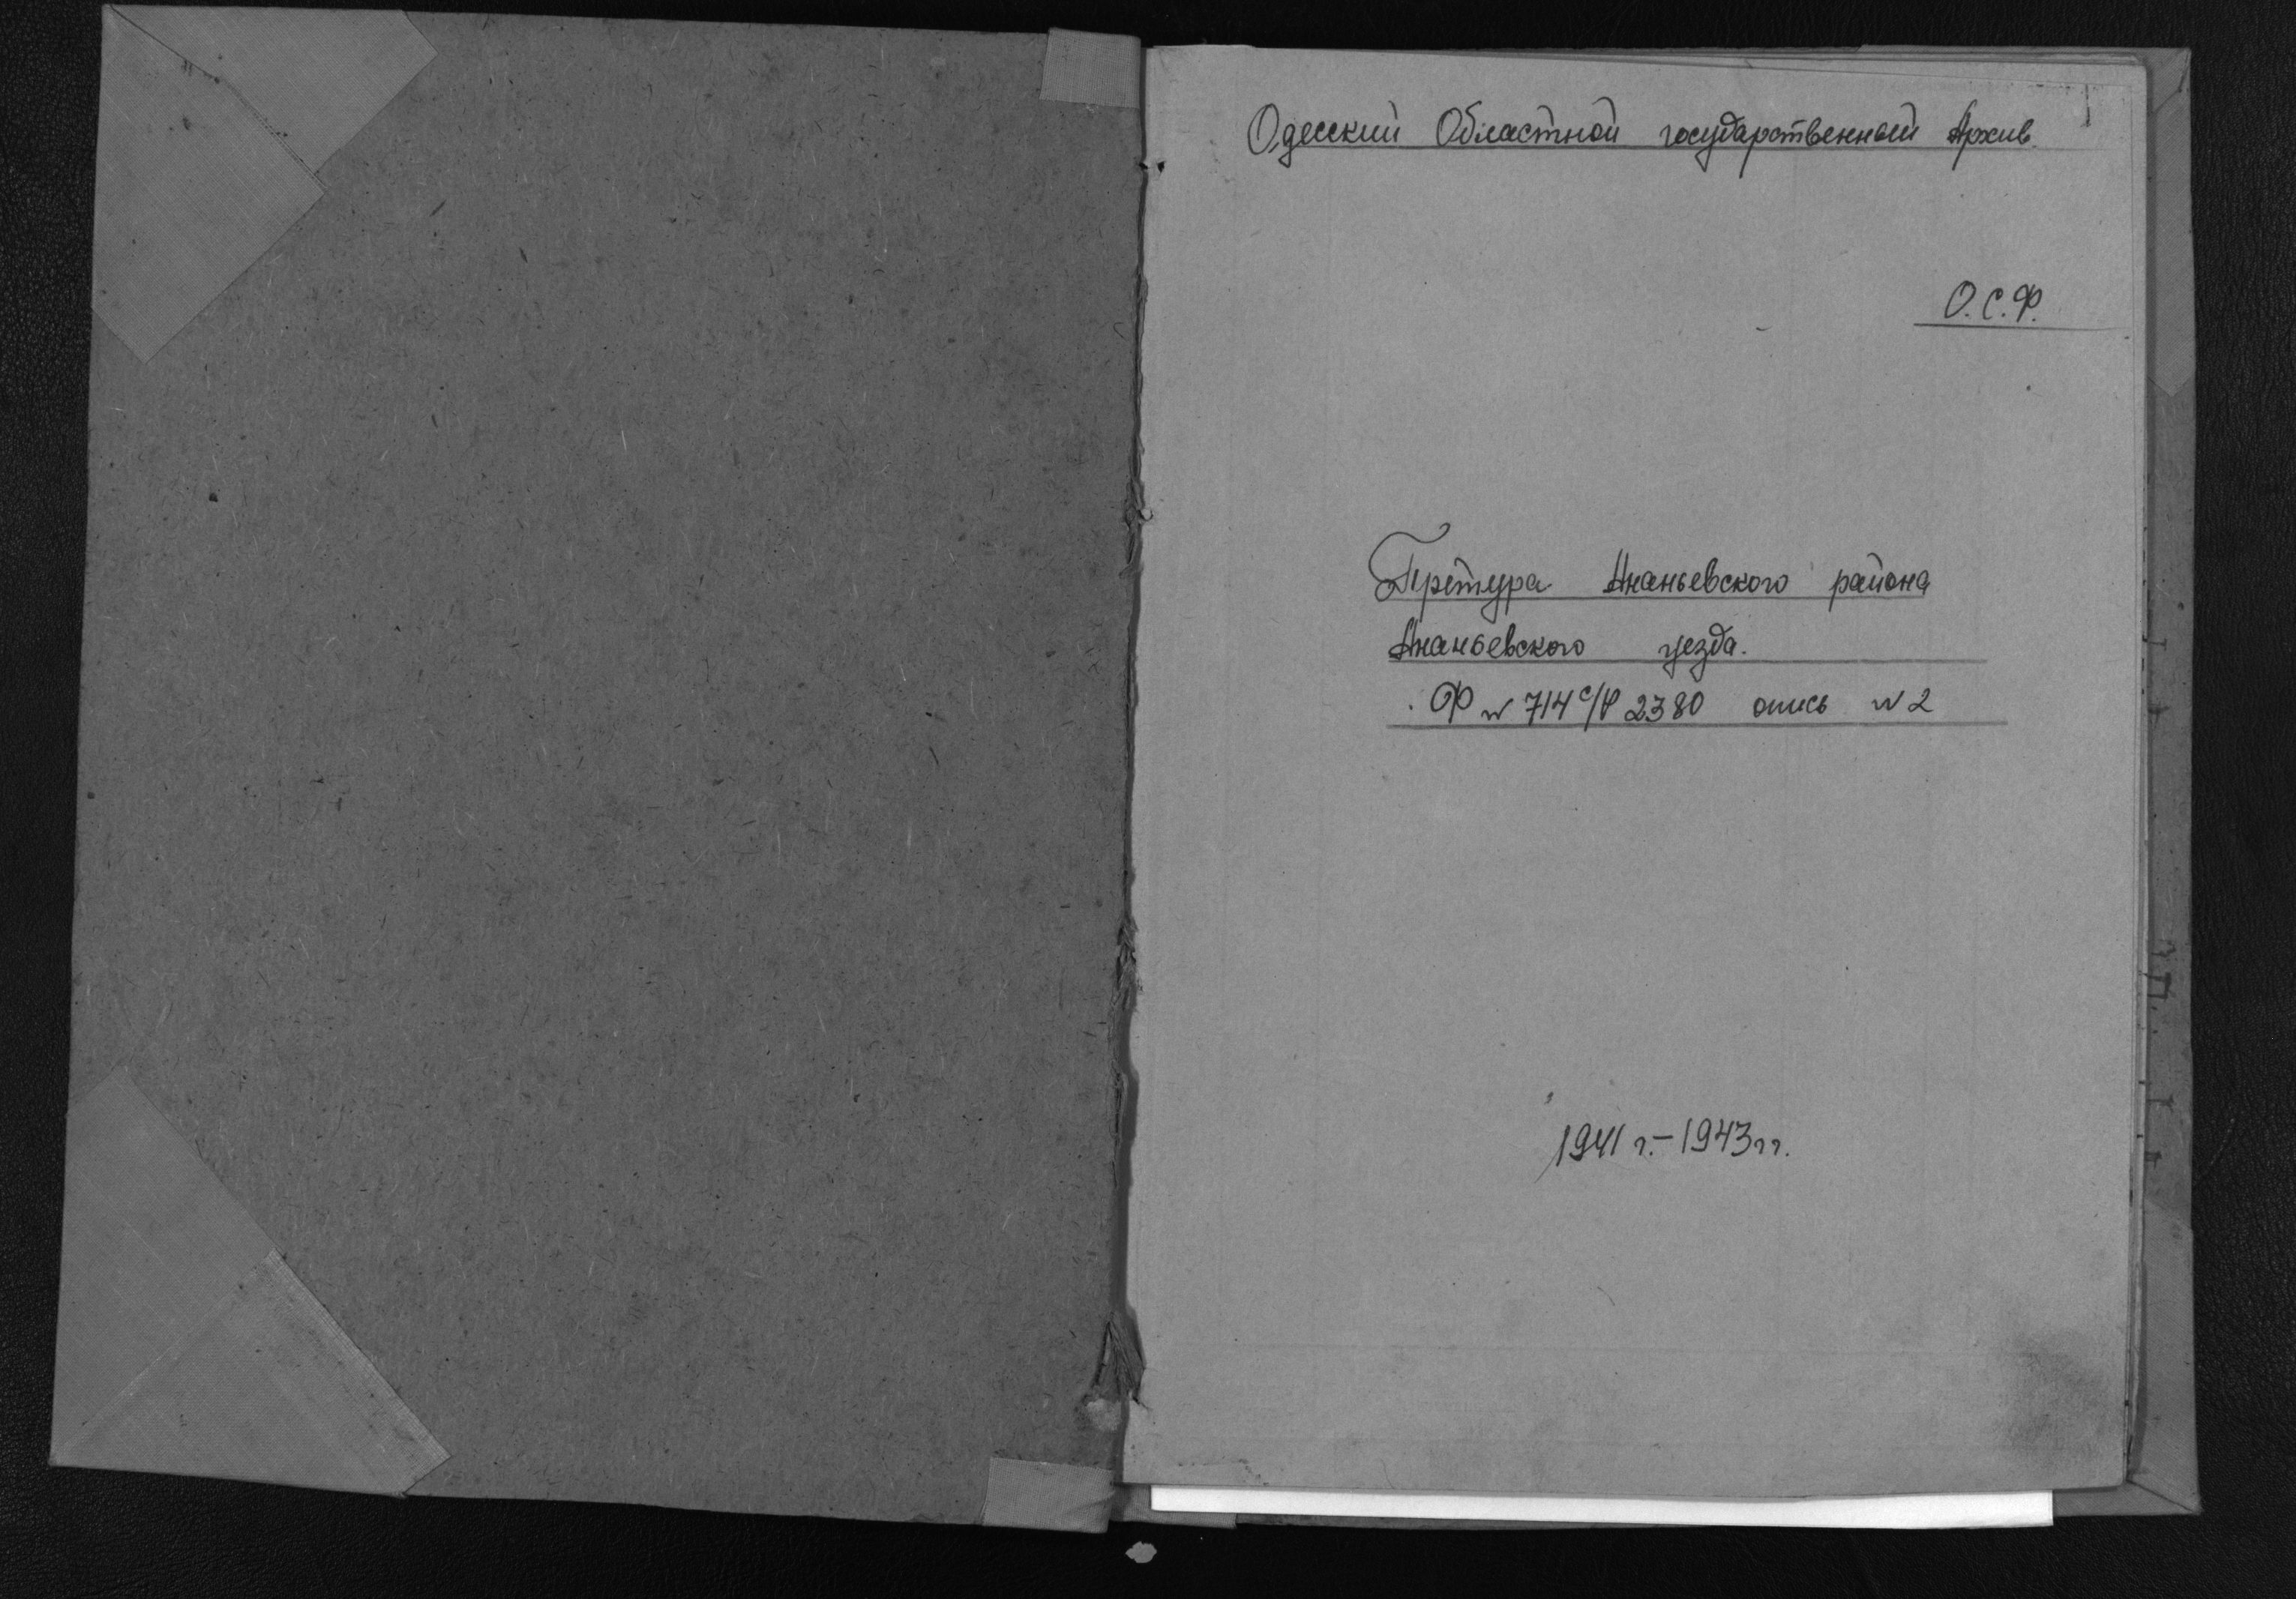 Одесский Областной государственный Архив.
О.С.Ф.
Претура Ананьевского района
Ананьевского уезда.
Ф № 714 с/Р 2380 опись № 2
1941 г. – 1943 гг.